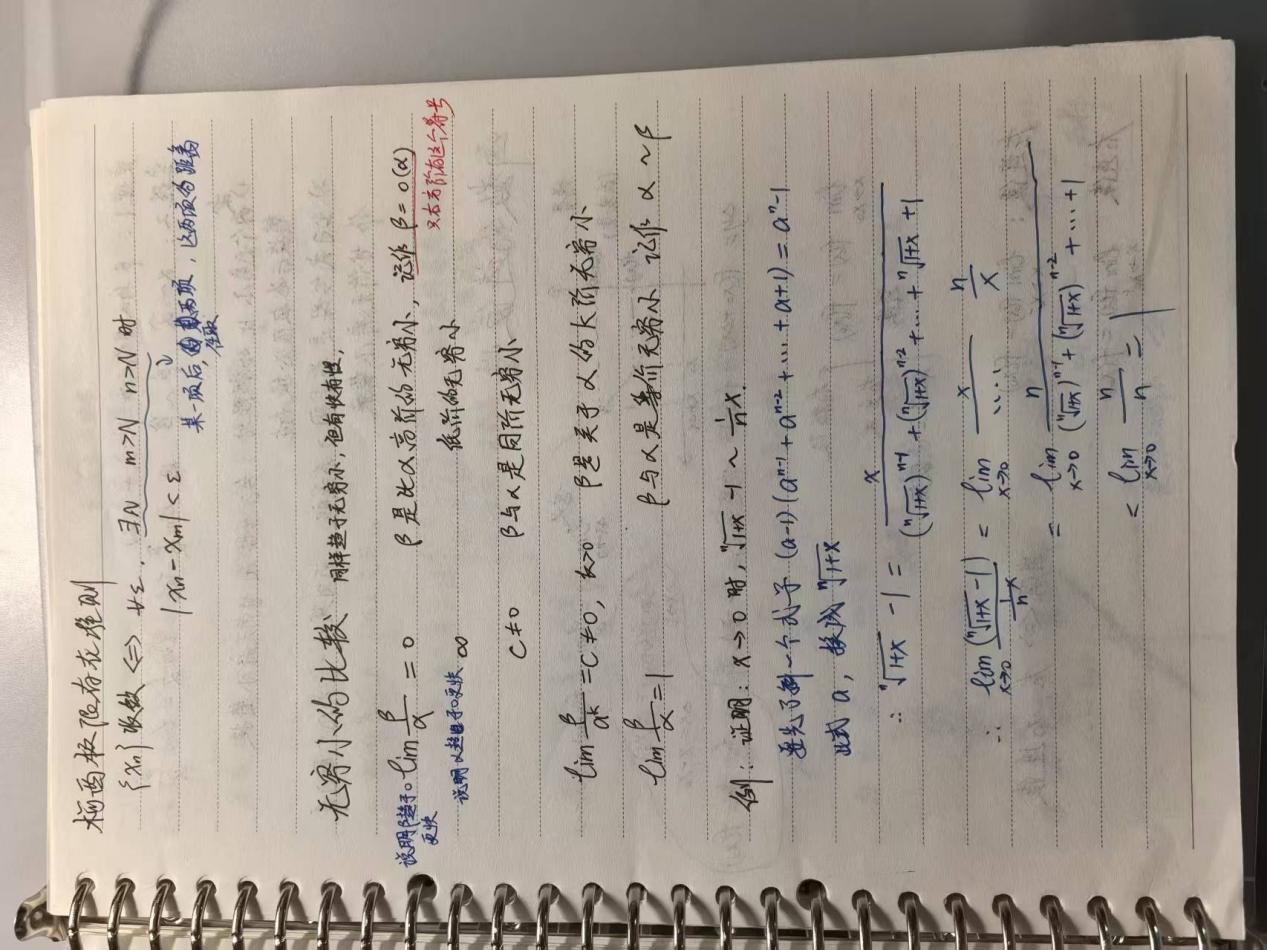 柯西极限存在准则
{xn}收敛 <=> ∀ε. ∃N m>N n>N 时
|xn - xm| < ε
某一项后,任取两项,这两项的距离
无穷小的比较 同样趋于无穷小,但有快有慢,
说明β趋于0更快 lim β/α = 0 β是比α高阶的无穷小, 记作 β=o(α)
只有高阶有这个符号
说明α趋于0更快 ∞ 低阶的无穷小
C≠0 β与α是同阶无穷小
lim β/α^k = C≠0, k>0 β是关于α的k阶无穷小
lim β/α = 1 β与α是等价无穷小 记作 α~β
例: 证明: x→0 时, ⁿ√(1+x) - 1 ~ 1/n x.
首先了解一个式子 (a-1)(a^(n-1) + a^(n-2) + ... + a+1) = a^n - 1
此式 a, 换成 ⁿ√(1+x)
∴ ⁿ√(1+x) - 1 = x / ((ⁿ√(1+x))^(n-1) + (ⁿ√(1+x))^(n-2) + ... + ⁿ√(1+x) + 1)
∴ lim x→0 (ⁿ√(1+x) - 1) / (1/n x) = lim x→0 x/..... n/x
= lim x→0 n / ((ⁿ√(1+x))^(n-1) + (ⁿ√(1+x))^(n-2) + ... + 1)
< lim x→0 n/n = 1